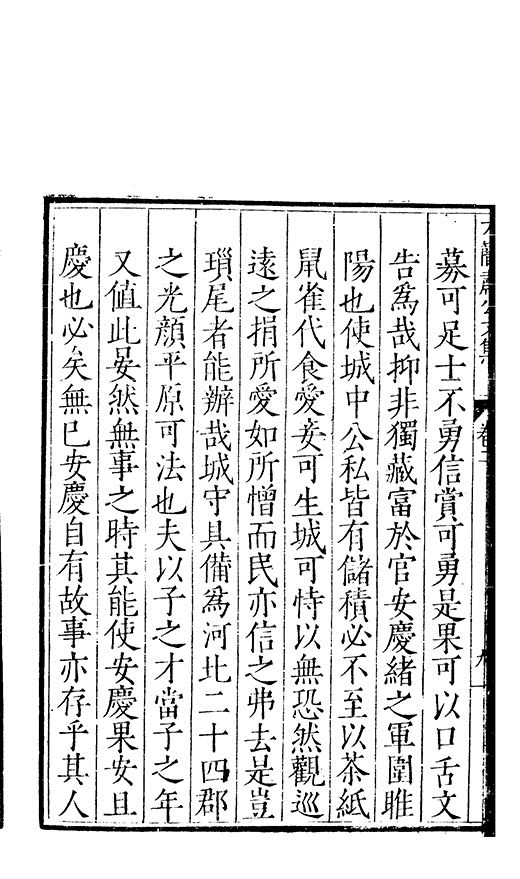 募可足士不勇信賞可勇是果可以口舌文
告爲哉抑非獨藏富於官安慶緒之軍圍睢
陽也使城中公私皆有儲積必不至以茶紙
鼠雀代食愛妾可生城可恃以無恐然觀巡
遠之捐所愛如所憎而民亦信之弗去是豈
瑣尾者能辦哉城守具備爲河北二十四郡
之光顏平原可法也夫以子之才當子之年
又值此晏然無事之時其能使安慶果安且
慶也必矣無已安慶自有故事亦存乎其人